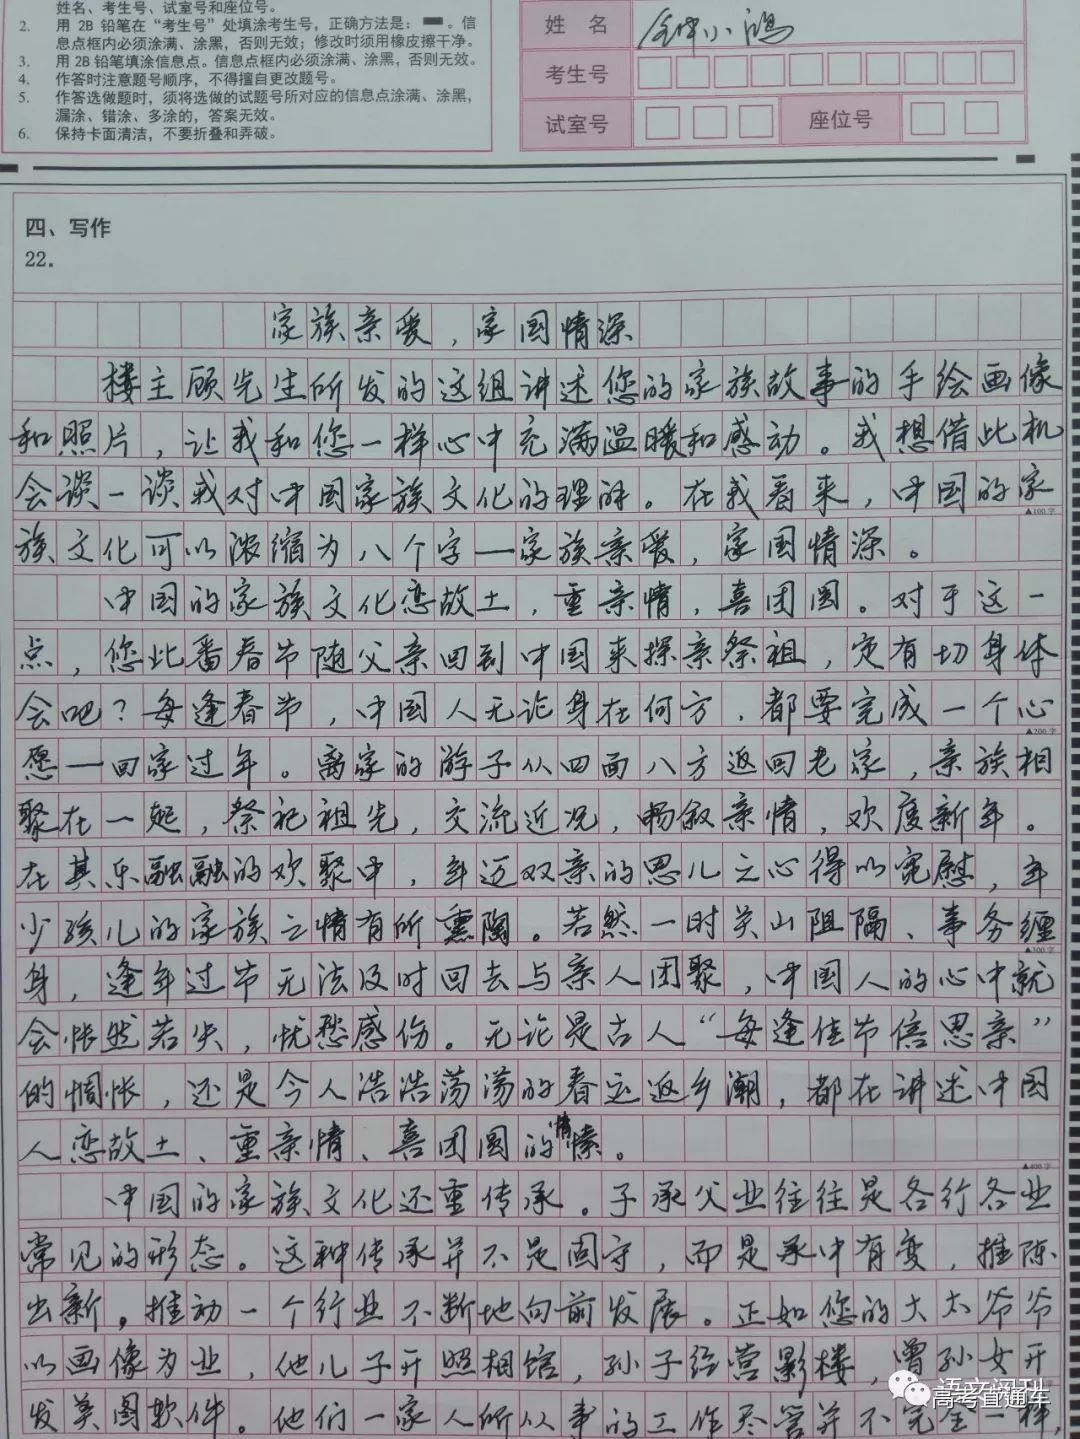 姓名、考生号、试室号和座位号。
2. 用 2B 铅笔在“考生号”处填涂考生号，正确方法是：▬。信
息点框内必须涂满、涂黑，否则无效；修改时须用橡皮擦干净。
3. 用 2B 铅笔填涂信息点。信息点框内必须涂满、涂黑，否则无效。
4. 作答时注意题号顺序，不得擅自更改题号。
5. 作答选做题时，须将选做的试题号所对应的信息点涂满、涂黑，
漏涂、错涂、多涂的，答案无效。
6. 保持卡面清洁，不要折叠和弄破。
姓 名 钟小鸿
考生号
试室号 座位号
四、写作
22.
家族亲爱，家国情深
楼主顾先生所发的这组讲述您的家族故事的手绘画像
和照片，让我和您一样心中充满温暖和感动。我想借此机
会谈一谈我对中国家族文化的理解。在我看来，中国的家
▲100字
族文化可以浓缩为八个字—家族亲爱，家国情深。
中国的家族文化恋故土，重亲情，喜团圆。对于这一
点，您此番春节随父亲回到中国来探亲祭祖，定有切身体
会吧？每逢春节，中国人无论身在何方，都要完成一个心
▲200字
愿—回家过年。离家的游子从四面八方返回老家，亲族相
聚在一起，祭祀祖先，交流近况，畅叙亲情，欢度新年。
在其乐融融的欢聚中，年迈双亲的思儿之心得以宽慰，年
少孩儿的家族之情有所熏陶。若然一时关山阻隔、事务缠
▲300字
身，逢年过节无法及时回去与亲人团聚，中国人的心中就
会怅然若失，忧愁感伤。无论是古人“每逢佳节倍思亲”
的惆怅，还是今人浩浩荡荡的春运返乡潮，都在讲述中国
人恋故土、重亲情、喜团圆的情愫。
▲400字
中国的家族文化还重传承。子承父业往往是各行各业
常见的形态。这种传承并不是固守，而是承中有变，推陈
出新，推动一个行业不断地向前发展。正如您的大太爷爷
以画像为业，他儿子开照相馆，孙子经营影楼，曾孙女开
发美图软件。他们一家人所从事的工作尽管并不完全一样，
语文阅刊
高考直通车